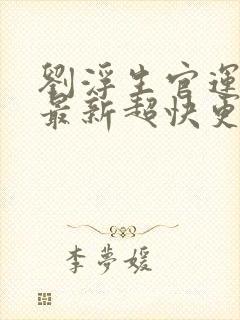 劉浮生官運
最新超快更
李夢媛